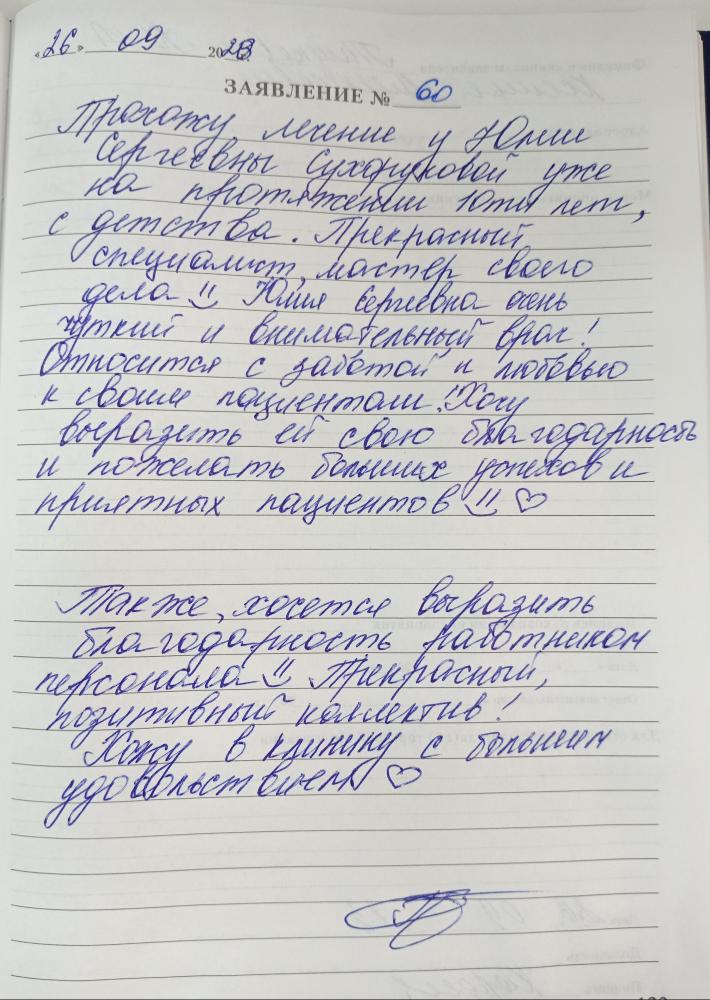 «26» 09 2023
ЗАЯВЛЕНИЕ № 60
Прохожу лечение у Юлии
Сергеевны Сухоруковой уже
на протяжении 10ти лет,
с детства. Прекрасный
специалист, мастер своего
дела Юлия Сергеевна очень
чуткий и внимательный врач!
Относится с заботой и любовью
к своим пациентам! Хочу
выразить ей свою благодарность
и пожелать больших успехов и
приятных пациентов
Также, хочется выразить
благодарность работникам
персонала Прекрасный,
позитивный коллектив!
Хожу в клинику с большим
удовольствием